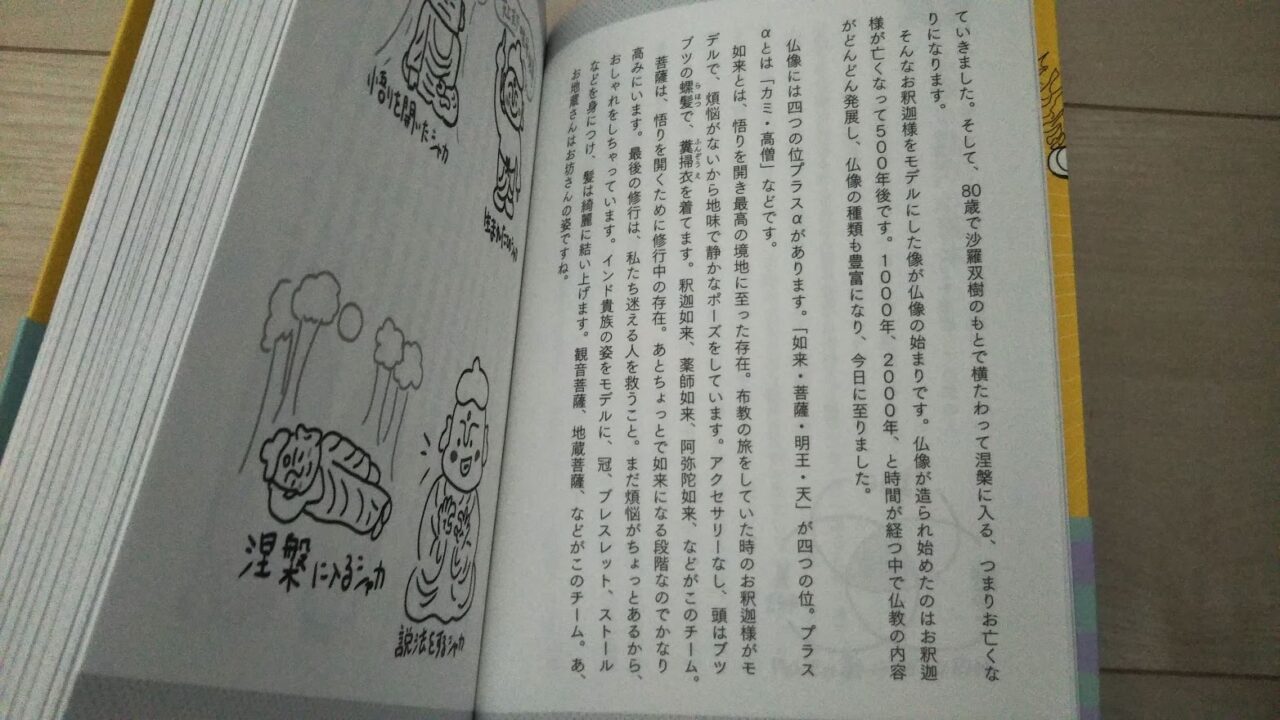 ていきました。そして、80歳で沙羅双樹のもとで横たわって涅槃に入る、つまりお亡くな
りになります。
そんなお釈迦様をモデルにした像が仏像の始まりです。仏像が造られ始めたのはお釈迦
様が亡くなって500年後です。1000年、2000年、と時間が経つ中で仏教の内容
がどんどん発展し、仏像の種類も豊富になり、今日に至りました。
仏像には四つの位プラスαがあります。「如来・菩薩・明王・天」が四つの位。プラス
αとは「カミ・高僧」などです。
如来とは、悟りを開き最高の境地に至った存在。布教の旅をしていた時のお釈迦様がモ
デルで、煩悩がないから地味で静かなポーズをしています。アクセサリーなし、頭はブツ
ブツの螺髪で、糞掃衣を着てます。釈迦如来、薬師如来、阿弥陀如来、などがこのチーム。
らほつ
ふんぞうえ
菩薩は、悟りを開くために修行中の存在。あとちょっとで如来になる段階なのでかなり
高みにいます。最後の修行は、私たち迷える人を救うこと。まだ煩悩がちょっとあるから、
おしゃれをしちゃっています。インド貴族の姿をモデルに、冠、ブレスレット、ストール
などを身につけ、髪は綺麗に結い上げます。観音菩薩、地蔵菩薩、などがこのチーム。あ、
お地蔵さんはお坊さんの姿ですね。
小悟りを開いたシャカ
説法をするシャカ
涅槃に入るシャカ